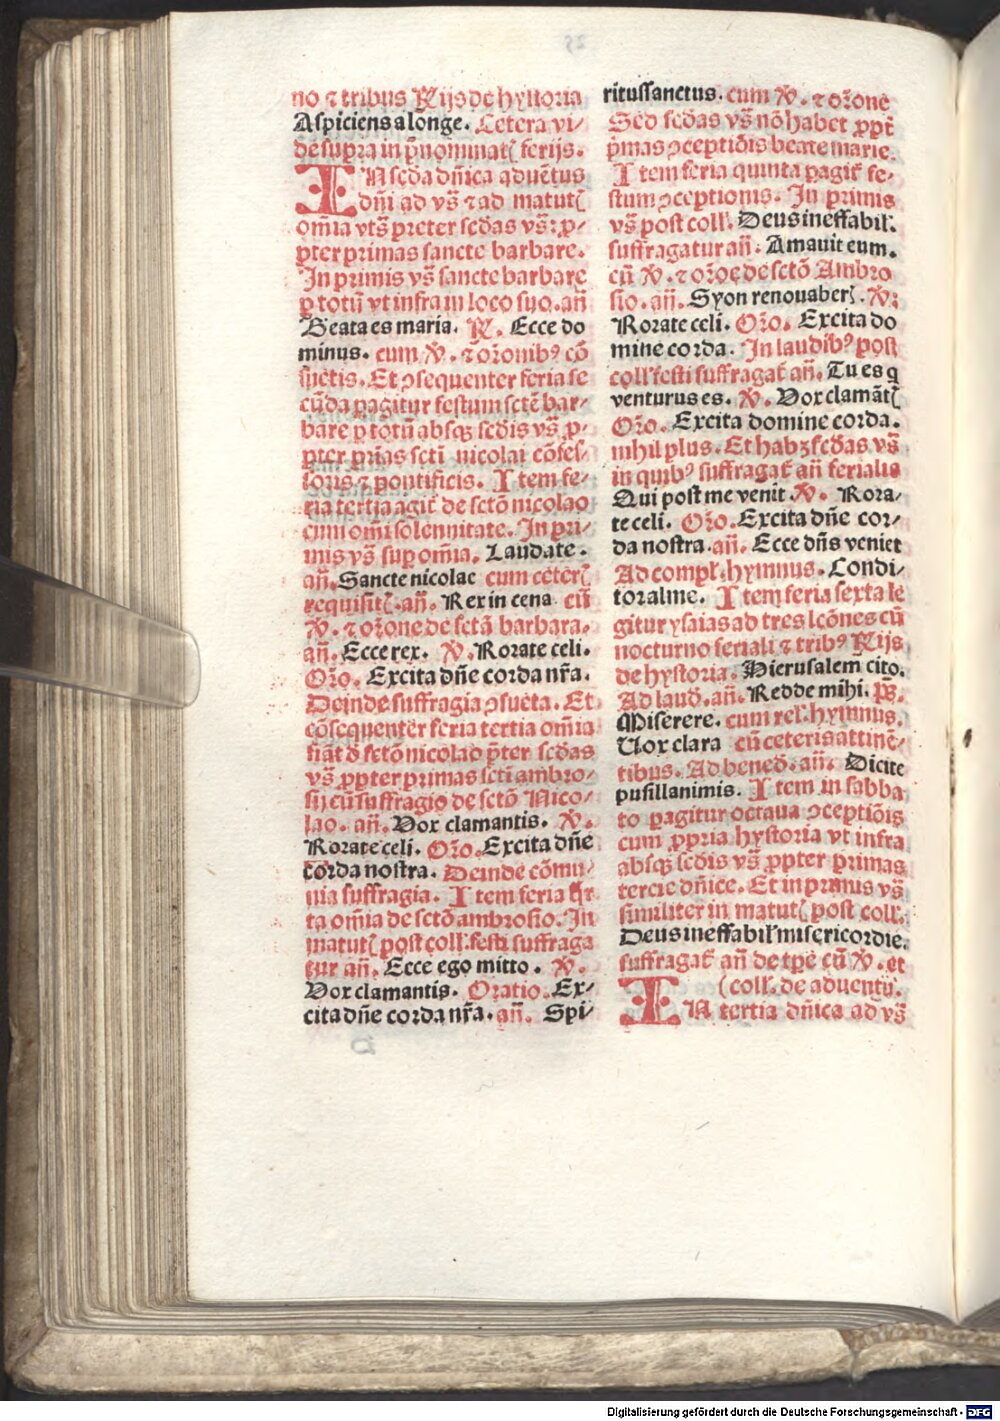 no ⁊ tribus Rijs de hystoria
Aspiciens a longe. Cetera vi-
de supra in p̄nominatꝭ ferijs.
IN scd̄a dn̄ica aduētus
dn̄i ad vs̄ ⁊ ad matutꝭ
om̄ia vts̄ preter scd̄as vs̄: ꝓ-
pter primas sancte barbare.
In primis vs̄ sancte barbare
ꝑ totū vt infra in loco suo. an̄
Beata es maria. R. Ecce do
minus. cum V. ⁊ or̄onibꝰ cō
suetis. Et ꝯsequenter feria se
cūda ꝑagitur festum sctē bar-
bare ꝑ totū absqꝫ scd̄is vs̄ ꝓ-
pter pr̄ias scti nicolai cōfes-
soris ⁊ pontificis. Item fe-
ria tertia agit̄ de sctō nicolao
cum om̄i solennitate. In pri-
mis vs̄ sup om̄ia. Laudate.
an̄. Sancte nicolae cum ceterꝭ
requisitꝭ. an̄. Rex in cena cū
V. ⁊ or̄one de sctā barbara.
an̄. Ecce rex. V. Rorate celi.
Or̄o. Excita dn̄e corda nr̄a.
Deinde suffragia ꝯsueta. Et
cōsequenter feria tertia om̄ia
fiāt d̄ sctō nicolao p̄ter scd̄as
vs̄ ꝓpter primas scti ambro-
sij cū suffragio de sctō Nico-
lao. an̄. Vox clamantis. V.
Rorate celi. Or̄o. Excita dn̄e
corda nostra. Deinde cōmu-
nia suffragia. Item feria q̄r
ta om̄ia de sctō ambrosio. In
matutꝭ post coll. festi suffraga
tur an̄. Ecce ego mitto. V.
Vox clamantis. Oratio. Ex-
cita dn̄e corda nr̄a. an̄. Spi-
ritussanctus. cum V. ⁊ or̄one
Sed scd̄as vs̄ nō habet ꝓpt̄
p̄mas ꝯceptiōis beate marie.
Item feria quinta ꝑagit̄ fe-
stum ꝯceptionis. In primis
vs̄ post coll. Deus ineffabil.
suffragatur an̄. Amauit eum.
cū V. ⁊ or̄oe de sctō Ambro
sio. an̄. Syon renouaberꝭ. V.
Rorate celi. Or̄o. Excita do
mine corda. In laudibꝰ post
coll festi suffragat̄ an̄. Tu es q
venturus es. V. Vox clamātꝭ
Or̄o. Excita domine corda.
nihil plus. Et habꝫ scd̄as vs̄
in quibꝰ suffragat̄ an̄ ferialis
Qui post me venit. V. Rora-
te celi. Or̄o. Excita dn̄e cor-
da nostra. an̄. Ecce dn̄s veniet
Ad compl. hymnus. Condi-
tor alme. Item feria sexta le
gitur ysaias ad tres lcōnes cū
nocturno feriali ⁊ tribꝰ Rijs
de hystoria. Hierusalem cito.
Ad laud. an̄. Redde mihi. ps̄.
Miserere. cum rel. hymnus.
Vox clara cū ceteris attinē-
tibus. Ad bened. an̄. Dicite
pusillanimis. Item in sabba
to ꝑagitur octaua ꝯceptiōis
cum ꝓpria hystoria vt infra
absqꝫ scd̄is vs̄ ꝓpter primas
tercie dn̄ice. Et in primis vs̄
similiter in matutꝭ post coll.
Deus ineffabil misericordie.
suffragat̄ an̄ de tp̄e cū V. et
(coll. de aduentu.
IN tertia dn̄ica ad vs̄
Digitalisierung gefördert durch die Deutsche Forschungsgemeinschaft - DFG